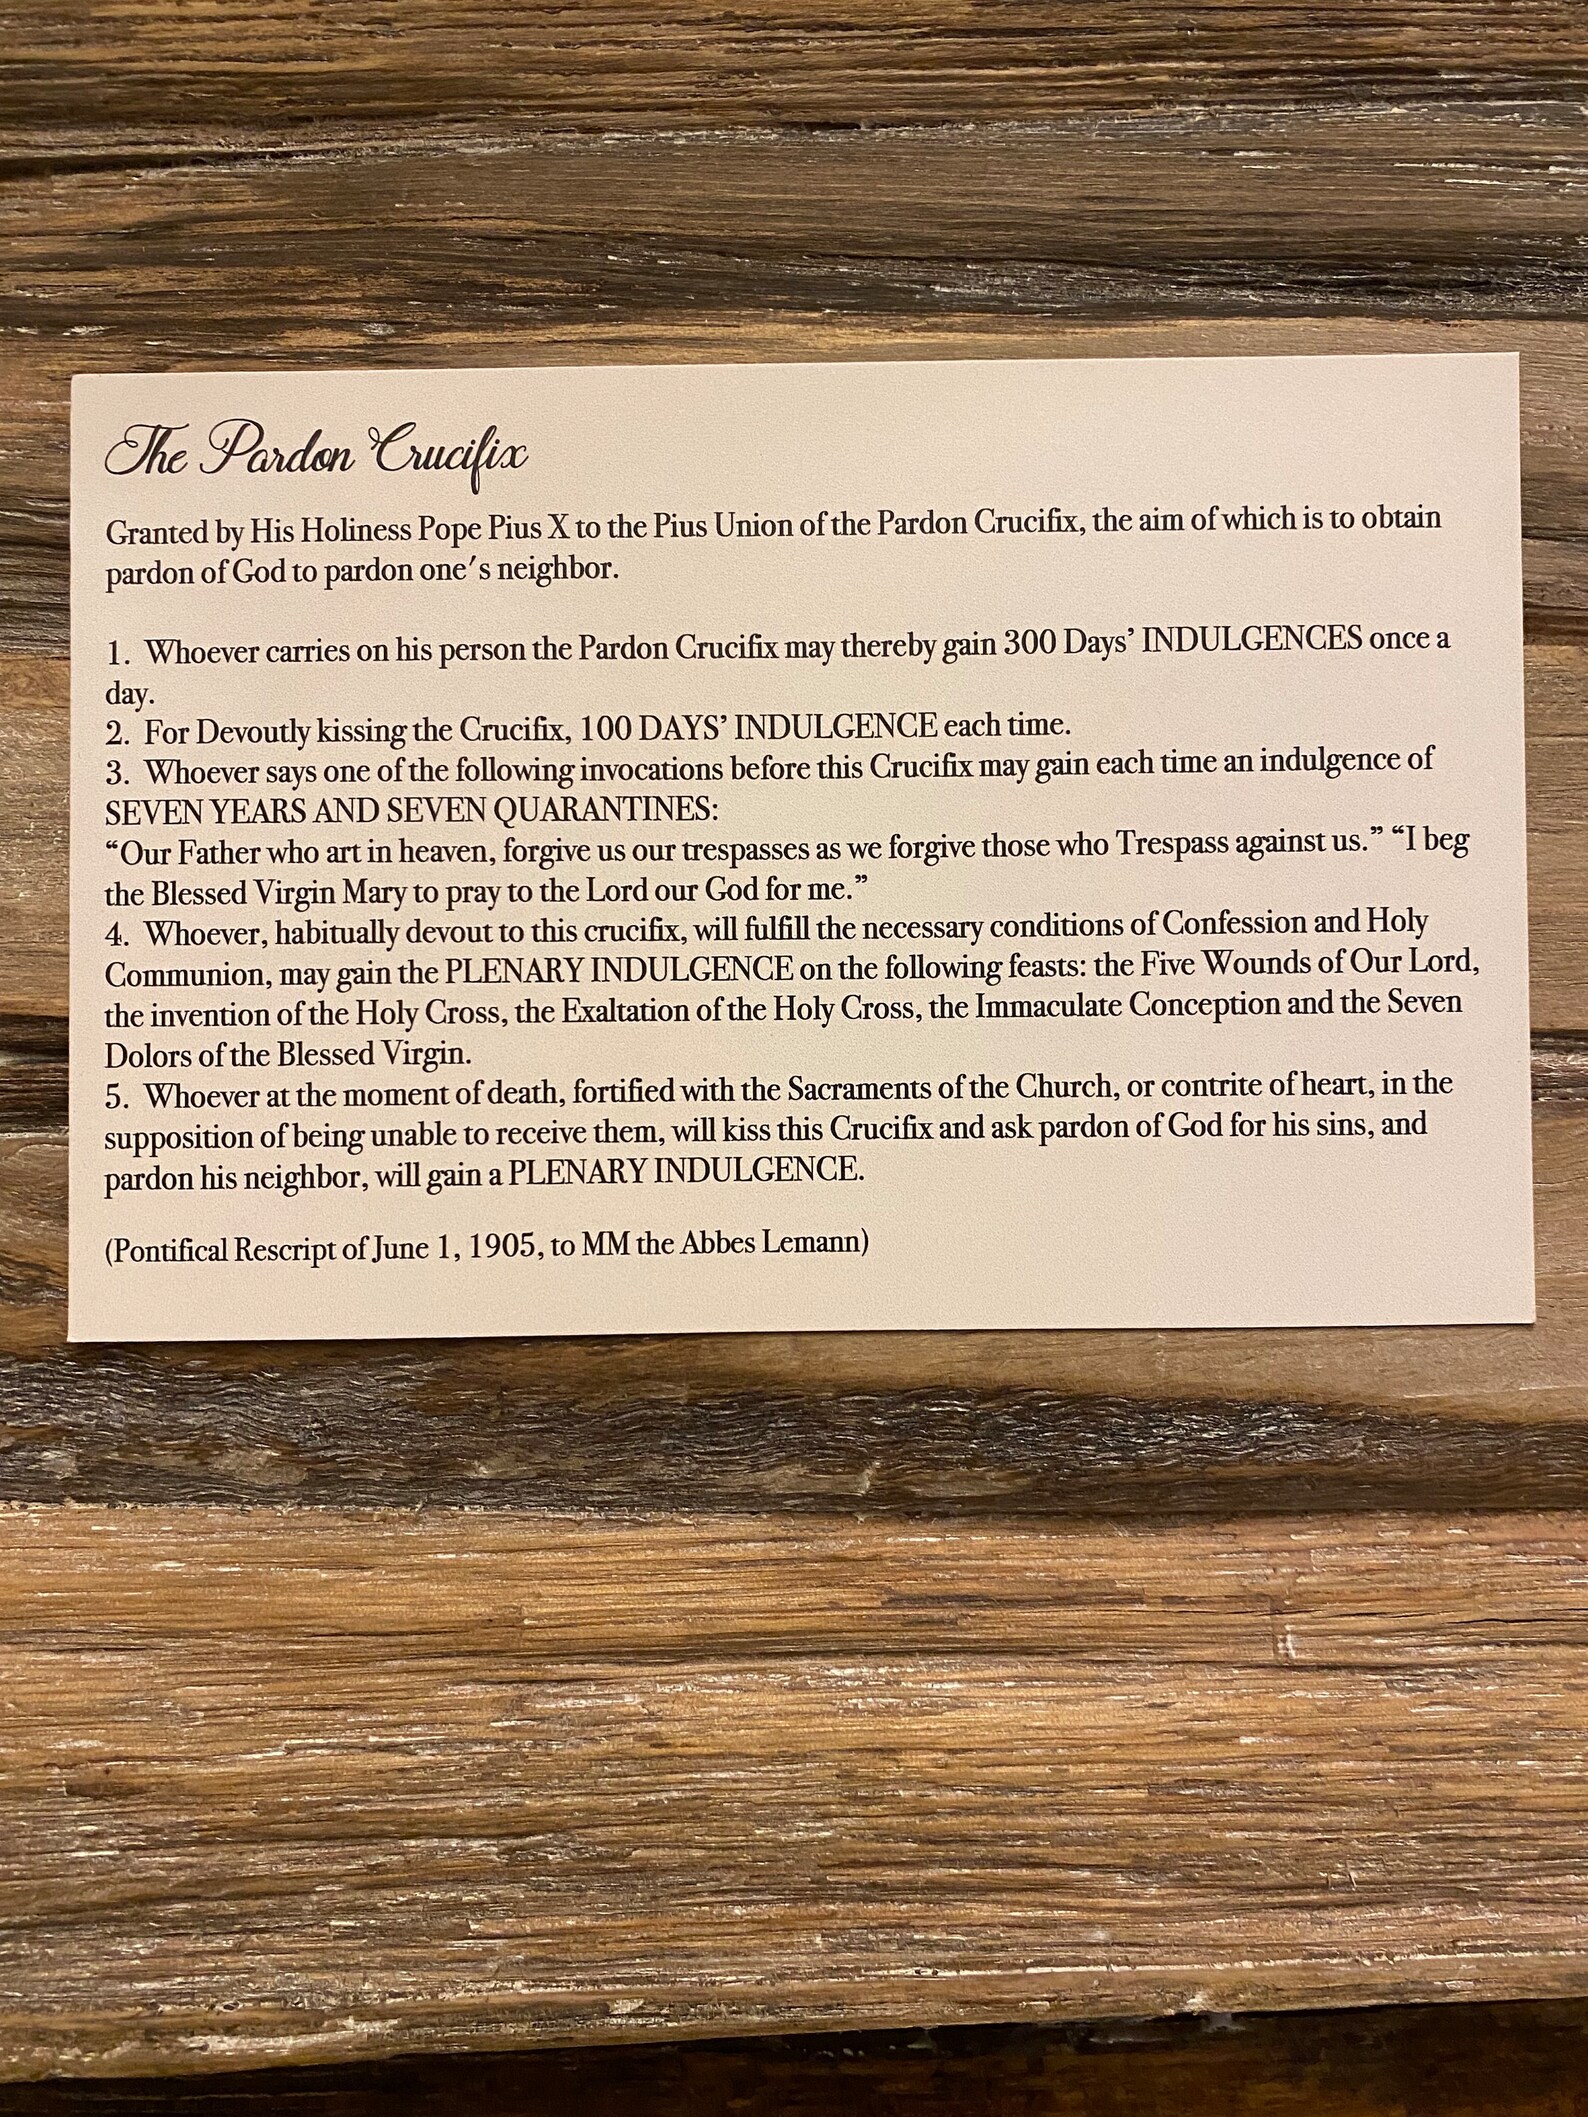 The Pardon Crucifix
Granted by His Holiness Pope Pius X to the Pius Union of the Pardon Crucifix, the aim of which is to obtain
pardon of God to pardon one's neighbor.
1. Whoever carries on his person the Pardon Crucifix may thereby gain 300 Days’ INDULGENCES once a
day.
2. For Devoutly kissing the Crucifix, 100 DAYS’ INDULGENCE each time.
3. Whoever says one of the following invocations before this Crucifix may gain each time an indulgence of
SEVEN YEARS AND SEVEN QUARANTINES:
“Our Father who art in heaven, forgive us our trespasses as we forgive those who Trespass against us.” “I beg
the Blessed Virgin Mary to pray to the Lord our God for me.”
4. Whoever, habitually devout to this crucifix, will fulfill the necessary conditions of Confession and Holy
Communion, may gain the PLENARY INDULGENCE on the following feasts: the Five Wounds of Our Lord,
the invention of the Holy Cross, the Exaltation of the Holy Cross, the Immaculate Conception and the Seven
Dolors of the Blessed Virgin.
5. Whoever at the moment of death, fortified with the Sacraments of the Church, or contrite of heart, in the
supposition of being unable to receive them, will kiss this Crucifix and ask pardon of God for his sins, and
pardon his neighbor, will gain a PLENARY INDULGENCE.
(Pontifical Rescript of June 1, 1905, to MM the Abbes Lemann)